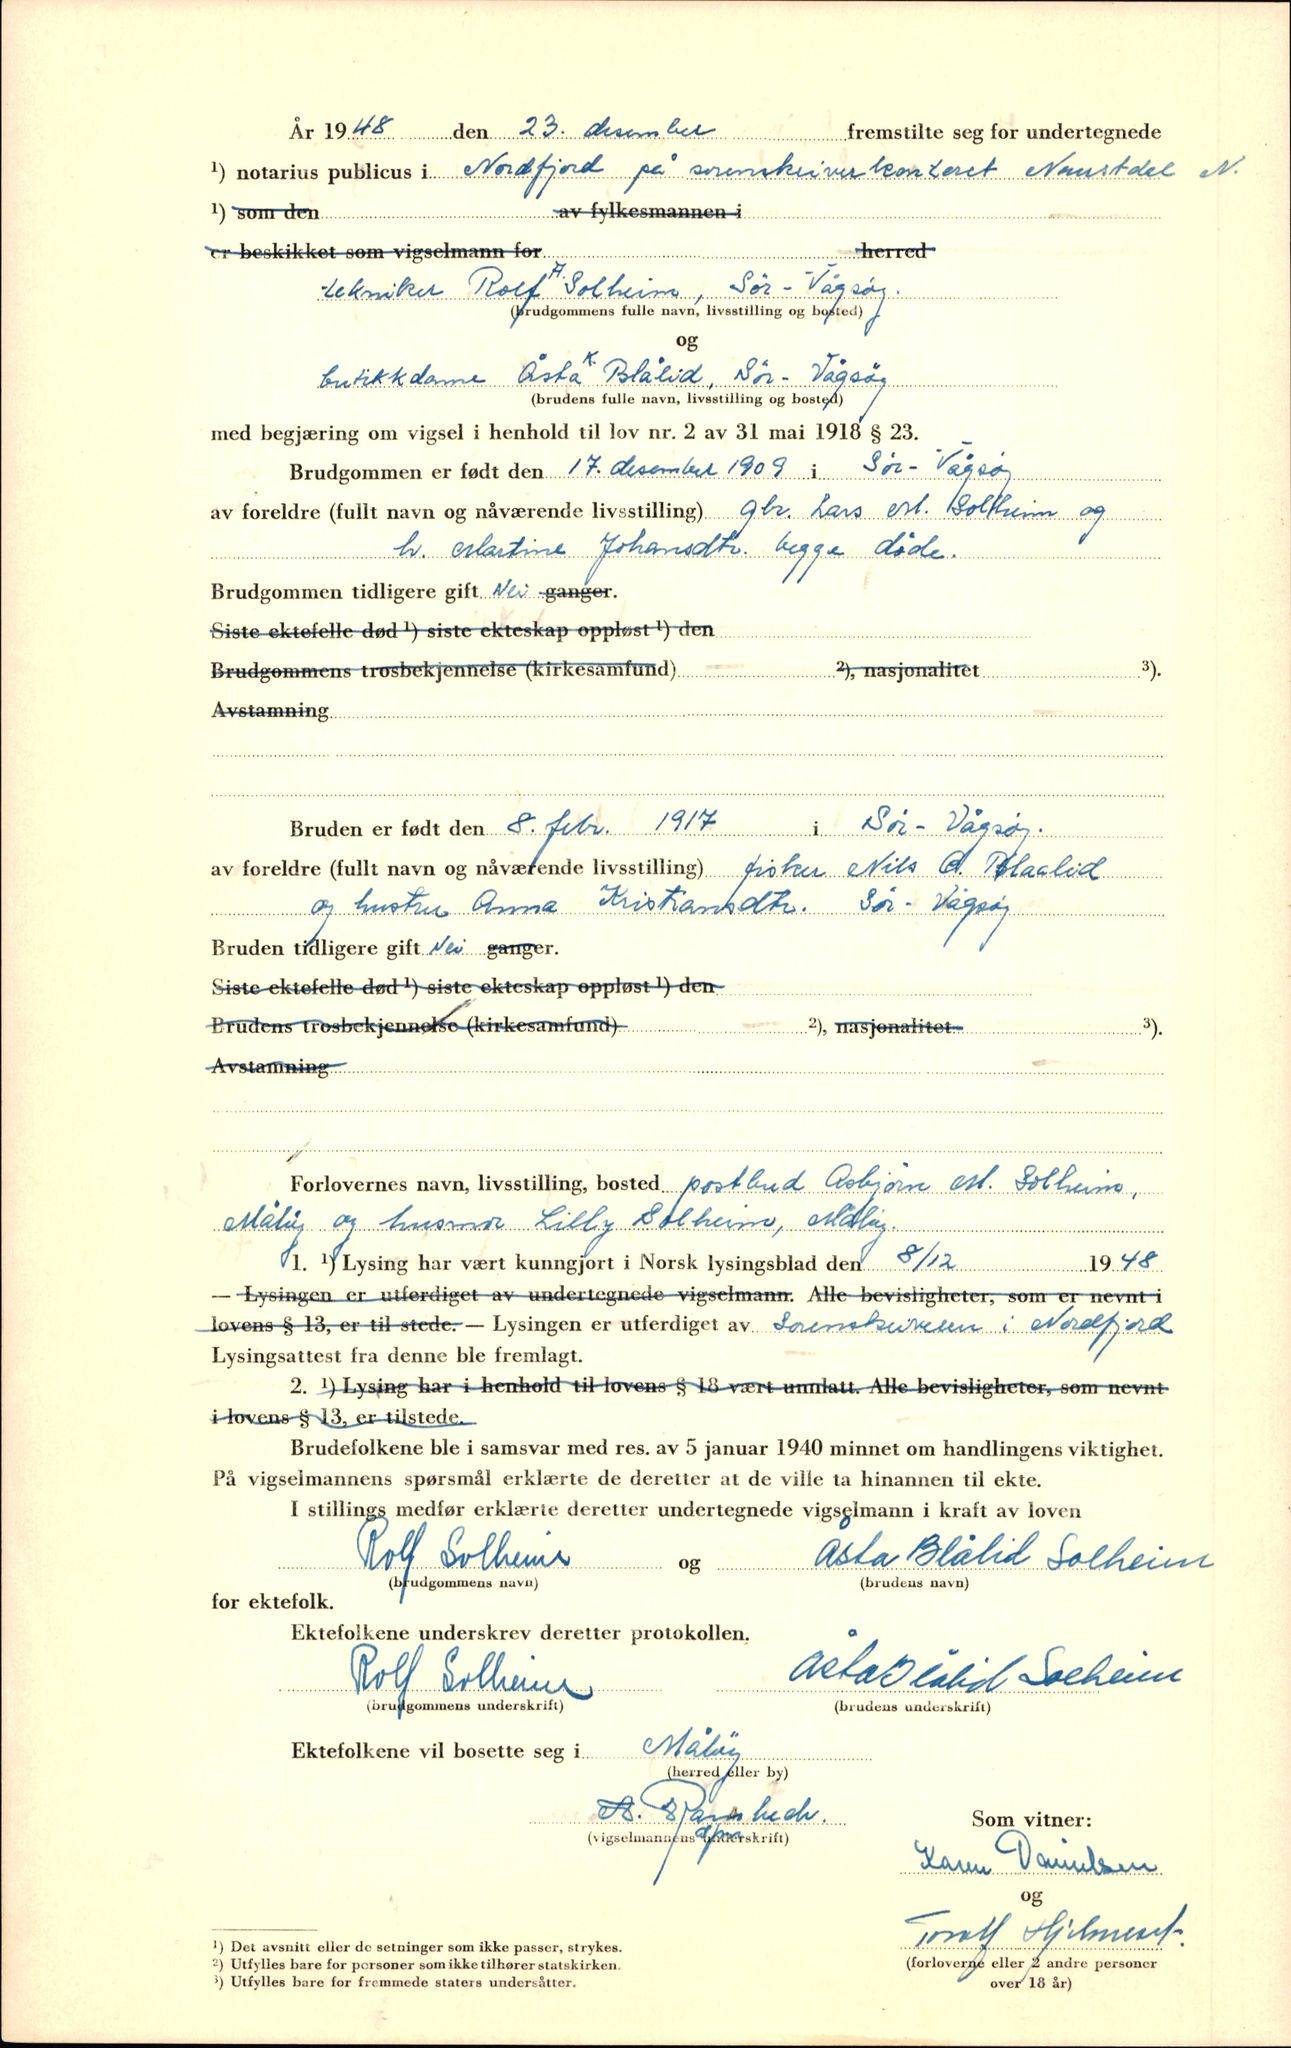 År 1948 den 23. desember fremstilte seg for undertegnede
¹) notarius publicus i Nordfjord på sorenskriverkontoret Naustdal N.
¹) som den av fylkesmannen i
er beskikket som vigselmann for herred
tekniker Rolf A. Solheim, Sör-Vågsöy.
(brudgommens fulle navn, livsstilling og bosted)
og
butikkdame Åsta K. Blålid, Sör-Vågsöy
(brudens fulle navn, livsstilling og bosted)
med begjæring om vigsel i henhold til lov nr. 2 av 31 mai 1918 § 23.
Brudgommen er født den 17. desember 1909 i Sör-Vågsöy
av foreldre (fullt navn og nåværende livsstilling) gbr. Lars M. Solheim og
h. Martine Johansdtr. begge döde.
Brudgommen tidligere gift Nei ganger.
Siste ektefelle død ¹) siste ekteskap oppløst ¹) den
Brudgommens trosbekjennelse (kirkesamfund) ²), nasjonalitet ³).
Avstamning
Bruden er født den 8. febr. 1917 i Sör-Vågsöy.
av foreldre (fullt navn og nåværende livsstilling) fisker Nils A. Blaalid
og hustru Anna Kristiansdtr. Sör-Vågsöy
Bruden tidligere gift Nei ganger.
Siste ektefelle død ¹) siste ekteskap oppløst ¹) den
Brudens trosbekjennelse (kirkesamfund) ²), nasjonalitet ³).
Avstamning
Forlovernes navn, livsstilling, bosted postbud Asbjörn M. Solheim,
Målöy og husmor Lilly Solheim, Målöy.
1. ¹) Lysing har vært kunngjort i Norsk lysingsblad den 8/12 1948
— Lysingen er utferdiget av undertegnede vigselmann. Alle bevisligheter, som er nevnt i
lovens § 13, er til stede. — Lysingen er utferdiget av Sorenskriveren i Nordfjord
Lysingsattest fra denne ble fremlagt.
2. ¹) Lysing har i henhold til lovens § 18 vært unnlatt. Alle bevisligheter, som nevnt
i lovens § 13, er tilstede.
Brudefolkene ble i samsvar med res. av 5 januar 1940 minnet om handlingens viktighet.
På vigselmannens spørsmål erklærte de deretter at de ville ta hinannen til ekte.
I stillings medfør erklærte deretter undertegnede vigselmann i kraft av loven
Rolf Solheim og Åsta Blålid Solheim
(brudgommens navn) (brudens navn)
for ektefolk.
Ektefolkene underskrev deretter protokollen.
Rolf Solheim Åsta Blålid Solheim
(brudgommens underskrift) (brudens underskrift)
Ektefolkene vil bosette seg i Målöy
(herred eller by)
(vigselmannens underskrift)
Som vitner:
Karen Danielsen
og
Toralf Hjelmeset.
(forloverne eller 2 andre personer
over 18 år)
¹) Det avsnitt eller de setninger som ikke passer, strykes.
²) Utfylles bare for personer som ikke tilhører statskirken.
³) Utfylles bare for fremmede staters undersåtter.